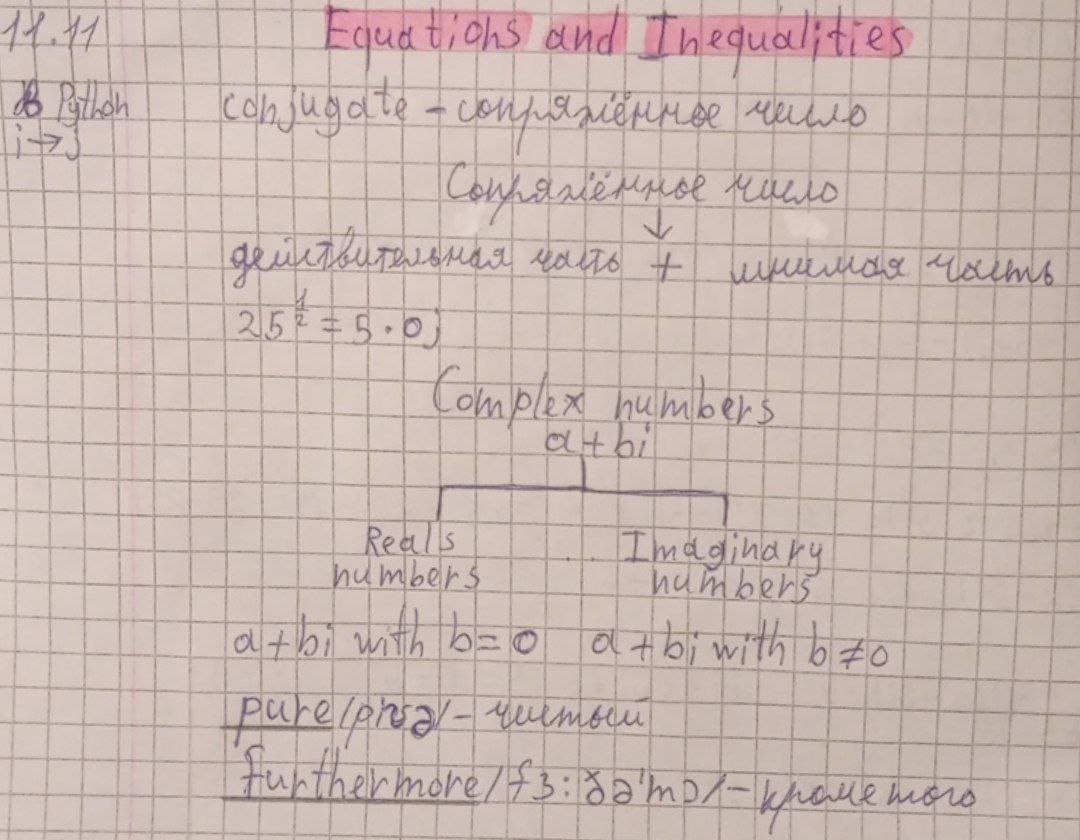 11.11
Equations and Inequalities
В Python
i → j
conjugate – сопряжённое число
Сопряжённое число
↓
действительная часть + мнимая часть
25^½ = 5 · 0j
Complex numbers
a + bi
Reals numbers
Imaginary numbers
a + bi with b = 0
a + bi with b ≠ 0
pure /pjʊə/ – чистый
furthermore /fɜ:ðə'mɔ/ – кроме того